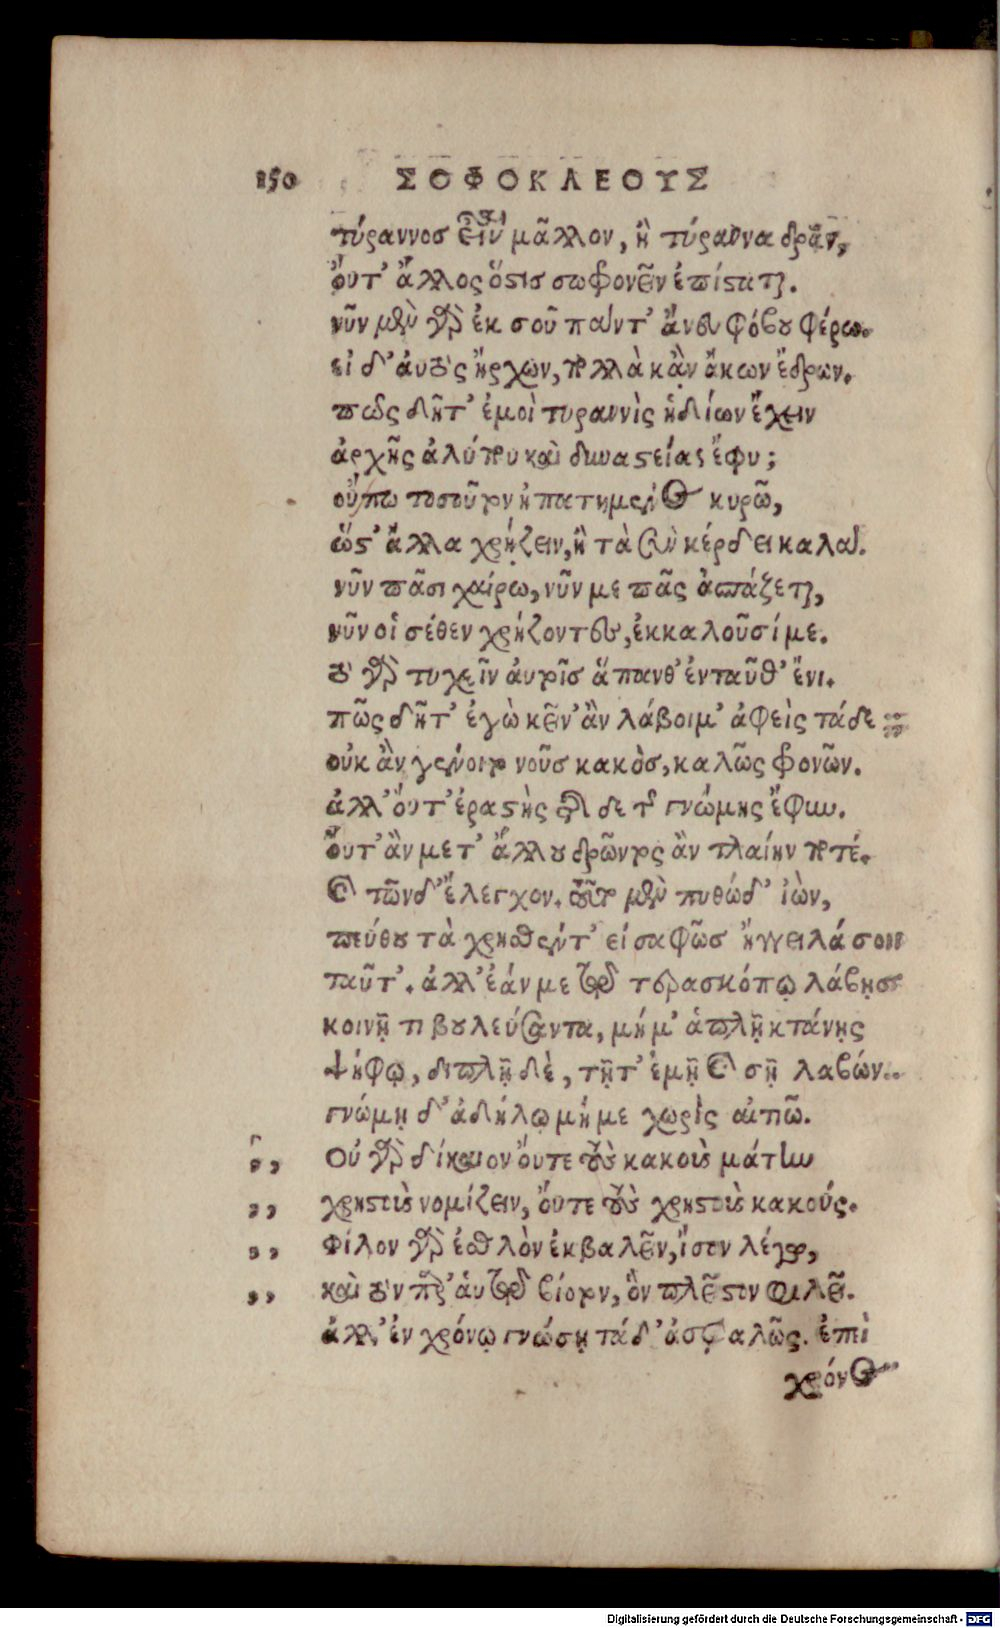 150 ΣΟΦΟΚΛΕΟΥΣ
τύραννοσ εἶναι μᾶλλον, ἢ τύραννα δρᾶν,
ὄυτ’ ἄλλος ὅστισ σωφρονεῖν ἐπίσταται.
νῦν μὲν γὰρ ἐκ σοῦ πάντ’ ἄνευ φόβου φέρω.
εἰ δ’ ἀυτὸς ἦρχων, πολλὰ κἂν ἄκων ἔδρων.
πῶς δῆτ’ ἐμοὶ τυραννὶς ἡδίων ἔχειν
ἀρχῆς ἀλύπου καὶ δυναστείας ἔφυ;
οὔπω τοσοῦτον ἠπατημένος κυρῶ,
ὥστ’ ἄλλα χρῄζειν, ἢ τὰ σὺν κέρδει καλά.
νῦν πᾶσι χαίρω, νῦν με πᾶς ἀσπάζεται,
νῦν οἱ σέθεν χρήζοντες, ἐκκαλοῦσί με.
τὸ γὰρ τυχεῖν ἀυτοῖσ ἅπανθ’ ἐνταῦθ’ ἔνι.
πῶς δῆτ’ ἐγὼ κεῖν’ ἂν λάβοιμ’ ἀφεὶς τάδε
οὐκ ἂν γένοιτο νοῦσ κακὸσ, καλῶς φρονῶν.
ἀλλ’ ὄυτ’ ἐραστὴς τῆσδε τῆς γνώμης ἔφυν.
ὄυτ’ ἂν μετ’ ἄλλου δρῶντος ἂν τλαίην ποτέ.
καὶ τῶνδ’ ἔλεγχον. τοῦτο μὲν πυθώδ’ ἰὼν,
πεύθου τὰ χρησθέντ’ εἰ σαφῶσ ἤγγειλά σοι
ταῦτ’. ἀλλ’ ἐάν με τῷ τερασκόπῳ λάβῃσ
κοινῇ τι βουλεύσαντα, μή μ’ ἁπλῇ κτάνῃς
ψήφῳ, διπλῇ δὲ, τῇ τ’ ἐμῇ καὶ σῇ λαβών.
γνώμῃ δ’ ἀδήλῳ μή με χωρὶς αἰτιῶ.
„ Οὐ γὰρ δίκαιον ὄυτε τοὺς κακοὺς μάτην
„ χρηστοὺς νομίζειν, ὄυτε τοὺς χρηστοὺς κακούς.
„ Φίλον γὰρ ἐσθλὸν ἐκβαλεῖν, ἴσον λέγω,
„ καὶ τὸν παρ’ ἁυτῷ βίοτον, ὃν πλεῖστον φιλεῖ.
ἀλλ’ ἐν χρόνῳ γνώσῃ τάδ’ ἀσφαλῶς. ἐπεὶ
χρόνος
Digitalisierung gefördert durch die Deutsche Forschungsgemeinschaft - DFG